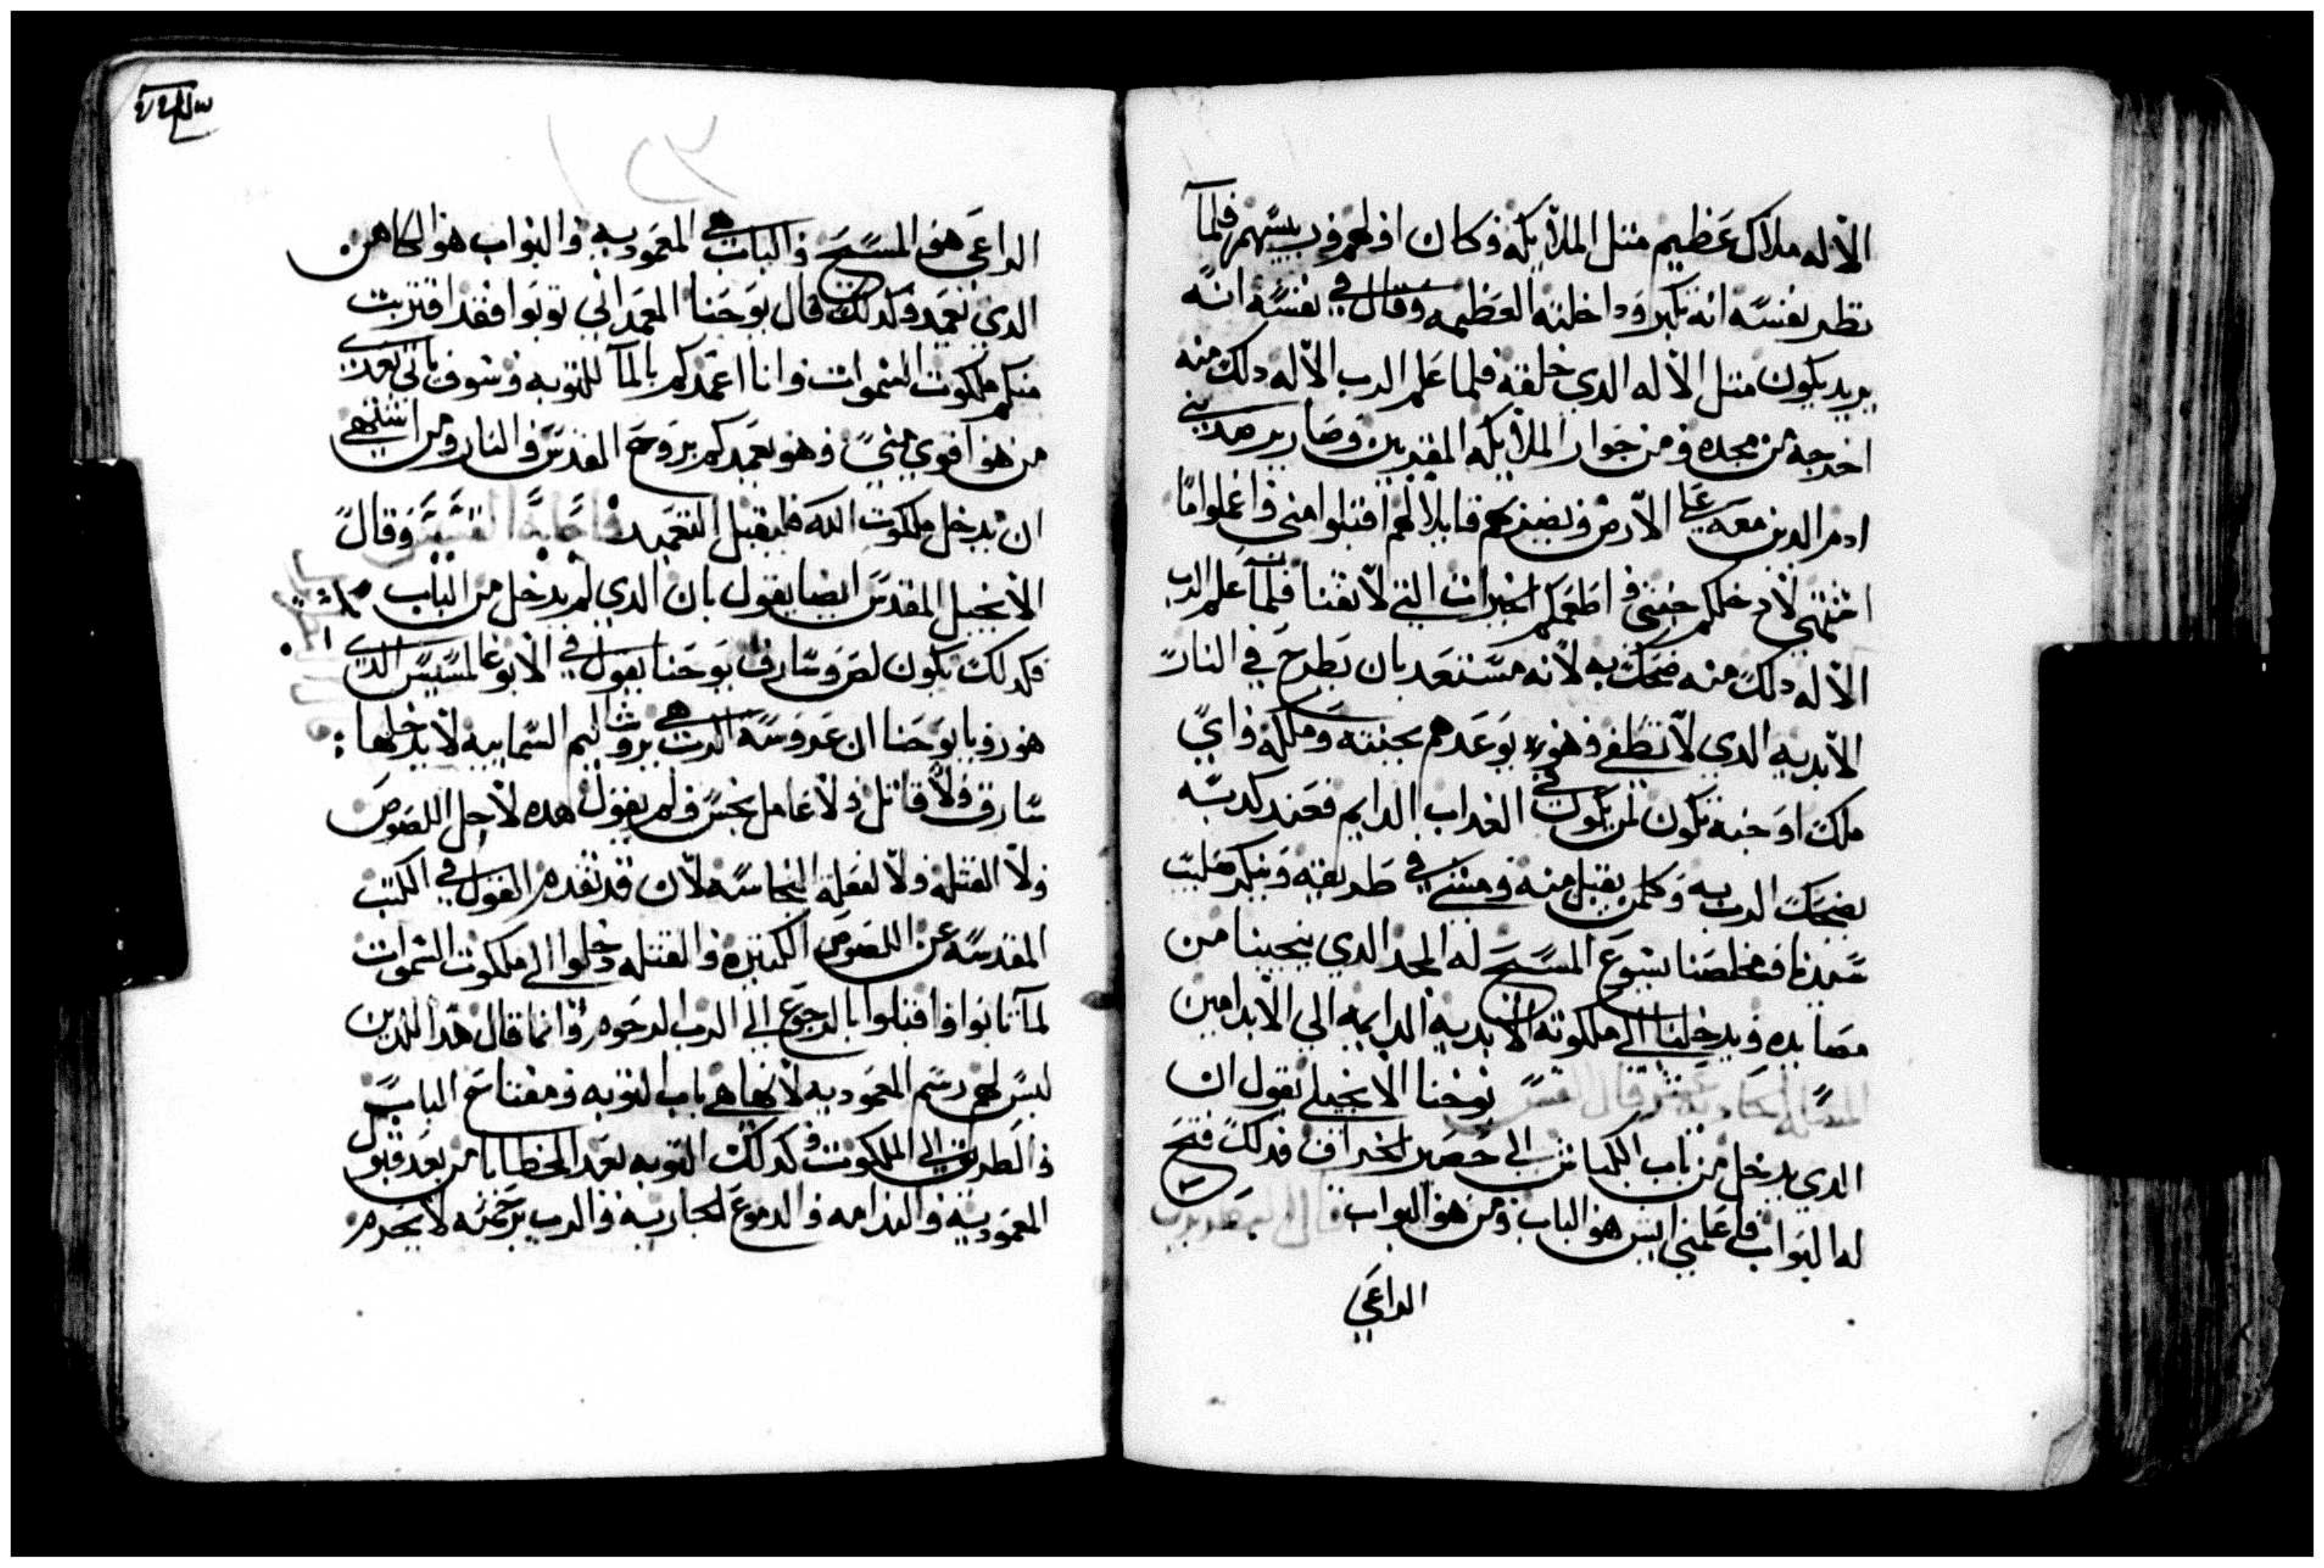 الاله ملاك عظيم متل الملايكه وكان اولهم وريسهم فلما
نظر نفسه انه تكبر وداخلته العظيمه وقال في نفسه انه
يريد يكون متل الاله الدي خلقه فلما علم الرب الاله دلك منه
اخرجه من مجده ومن جوار الملايكه المقربين وصار يرصد بني
ادم الدين معه علي الارض ويصيدهم قايلا لهم اقبلوا مني واعملوا ما
اشتهي لادخلكم جنتي واطعمكم الخيرات التي لا تفنا فلما علم الرب
الاله دلك منه ضحك به لانه مستعد بان يطرح في النار
الابديه الدي لا تطفي وهو يوعدهم بجنته وملكه واي
ملك او جنه تكون لمن يكون في العداب الدايم فعند كدبه
يضحك الرب به وكلمن يقبل منه ومشي في طريقته وينكر صليب
سيدنا ومخلصنا يسوع المسيح له المجد الدي ينجينا من
مصايده ويدخلنا الي ملكوته الابديه الدايمه الي الابد امين
المساله الحاديه عشر قال القس يوحنا الانجيلي يقول ان
الدي يدخل من باب الكباش الي حصير الخراف فدلك فتح
له البواب فاعلمني ايش هو الباب ومن هو البواب قال
الداعي
١٥٣
الداعي هو المسيح والباب هي المعموديه والبواب هو الكاهن
الدي يعمد وكدلك قال يوحنا المعمداني توبوا فقد اقتربت
منكم ملكوت السموات وانا اعمدكم بالما للتوبه وسوف ياتي بعدي
من هو اقوي مني وهو يعمدكم بروح القدس والنار ومن اشتهي
ان يدخل ملكوت الله فليقبل التعميد وقال
الانجيل المقدس ايضا يقول بان الدي لم يدخل من الباب
فكدلك يكون لص وسارق يوحنا يقول في الابوغالمسيس الدي
هو رويا يوحنا ان عروسة الرب هي يروشاليم السماييه لا يدخلها :
سارق ولا قاتل ولا عامل نجس ولم يقول هده لاجل اللصوص
ولا القتله ولا لفعلة النجاسه لان قد تقدم القول في الكتب
المقدسه عن اللصوص الكتيره والقتله دخلوا الي ملكوت السموات
لما تابوا واقبلوا بالرجوع الي الرب الرحوم وانما قال هدا للدين
ليس لهم رسم المعموديه لانها هي باب التوبه ومفتاح الباب
والطريق الي الملكوت وكدلك التوبه بعد الخطايا من بعد قبول
المعموديه والندامه والدموع الجاريه والرب برحمته لا يحرم